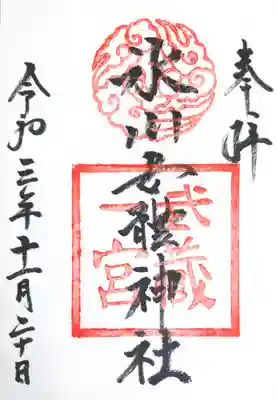 奉拝
氷川女體神社
武蔵
一宮
令和三年十一月二十日